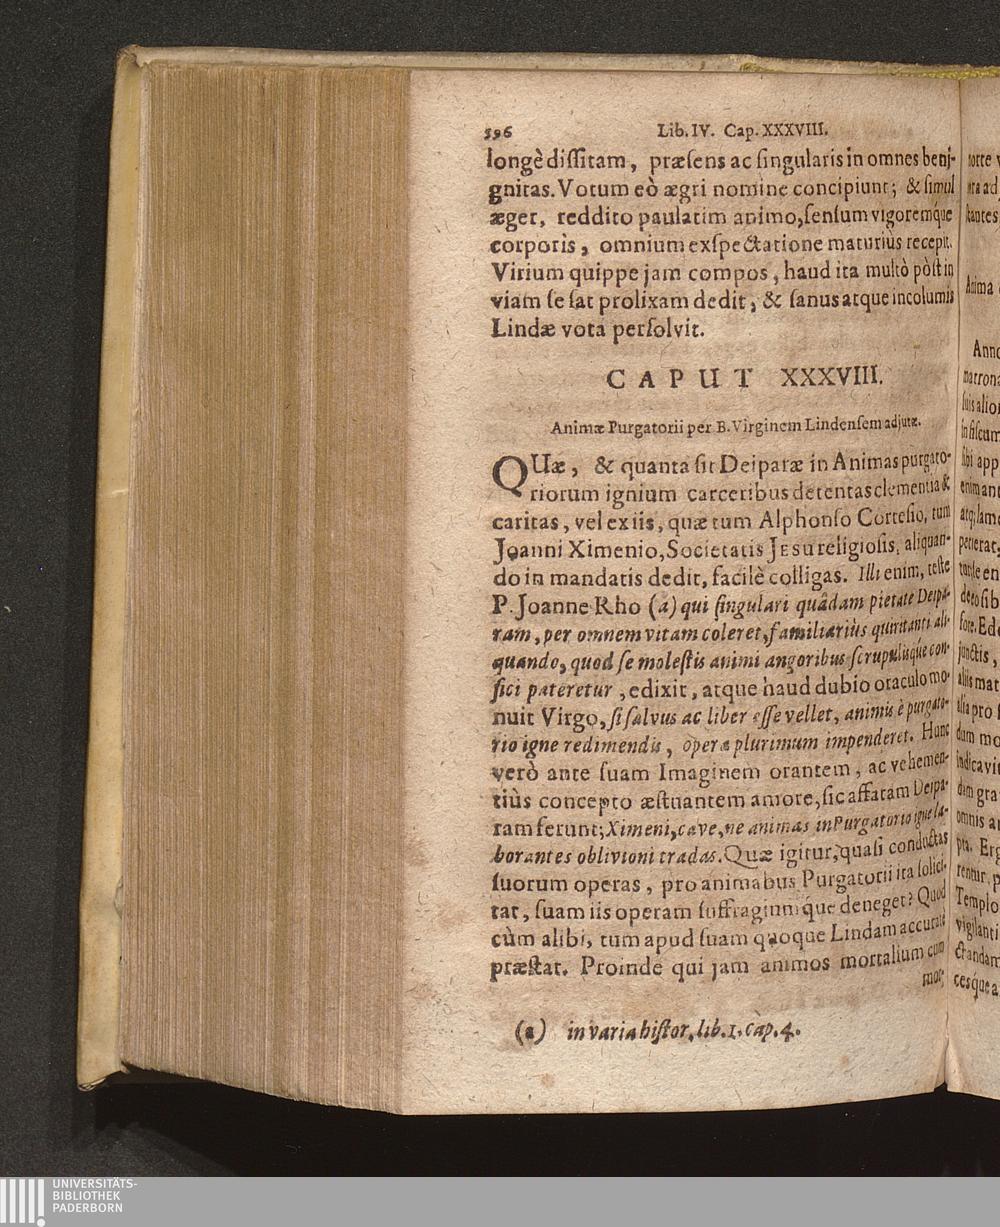 596 Lib. IV. Cap. XXXVIII.
longè dissitam, præsens ac singularis in omnes beni-
gnitas. Votum eò ægri nomine concipiunt; & simul
æger, reddito paulatim animo, sensum vigoremq́ue
corporis, omnium exspectatione maturiùs recepit.
Virium quippe jam compos, haud ita multò pòst in
viam se sat prolixam dedit, & sanus atque incolumis
Lindæ vota persolvit.
CAPUT XXXVIII.
Animæ Purgatorii per B. Virginem Lindensem adjutæ.
QUæ, & quanta sit Deiparæ in Animas purgato-
riorum ignium carceribus detentas clementia &
caritas, vel ex iis, quæ tum Alphonso Cortesio, tum
Joanni Ximenio, Societatis JEsu religiosis, aliquan-
do in mandatis dedit, facilè colligas. Illi enim, teste
P. Joanne Rho (a) qui singulari quâdam pietate Deipa-
ram, per omnem vitam coleret, familiariùs quiritanti ali-
quando, quod se molestis animi angoribus scrupulisq́ue con-
fici pateretur, edixit, atque haud dubio oraculo mo-
nuit Virgo, si salvus ac liber esse vellet, animis è purgato-
rio igne redimendis, operæ plurimum impenderet. Hunc
verò ante suam Imaginem orantem, ac vehemen-
tiùs concepto æstuantem amore, sic affatam Deipa-
ram ferunt; Ximeni, cave, ne animas in Purgatorio igne la-
borantes oblivioni tradas. Quæ igitur, quasi conductas
suorum operas, pro animabus Purgatorii ita solici-
tat, suam iis operam suffragiumq́ue deneget? Quod
cùm alibi, tum apud suam quoque Lindam accuratè
præstat. Proinde qui jam animos mortalium cum
mor-
(a) in varia histor. lib. 1. cap. 4.
Anima
Anno
Templo
vigilanti
UNIVERSITÄTS-
BIBLIOTHEK
PADERBORN